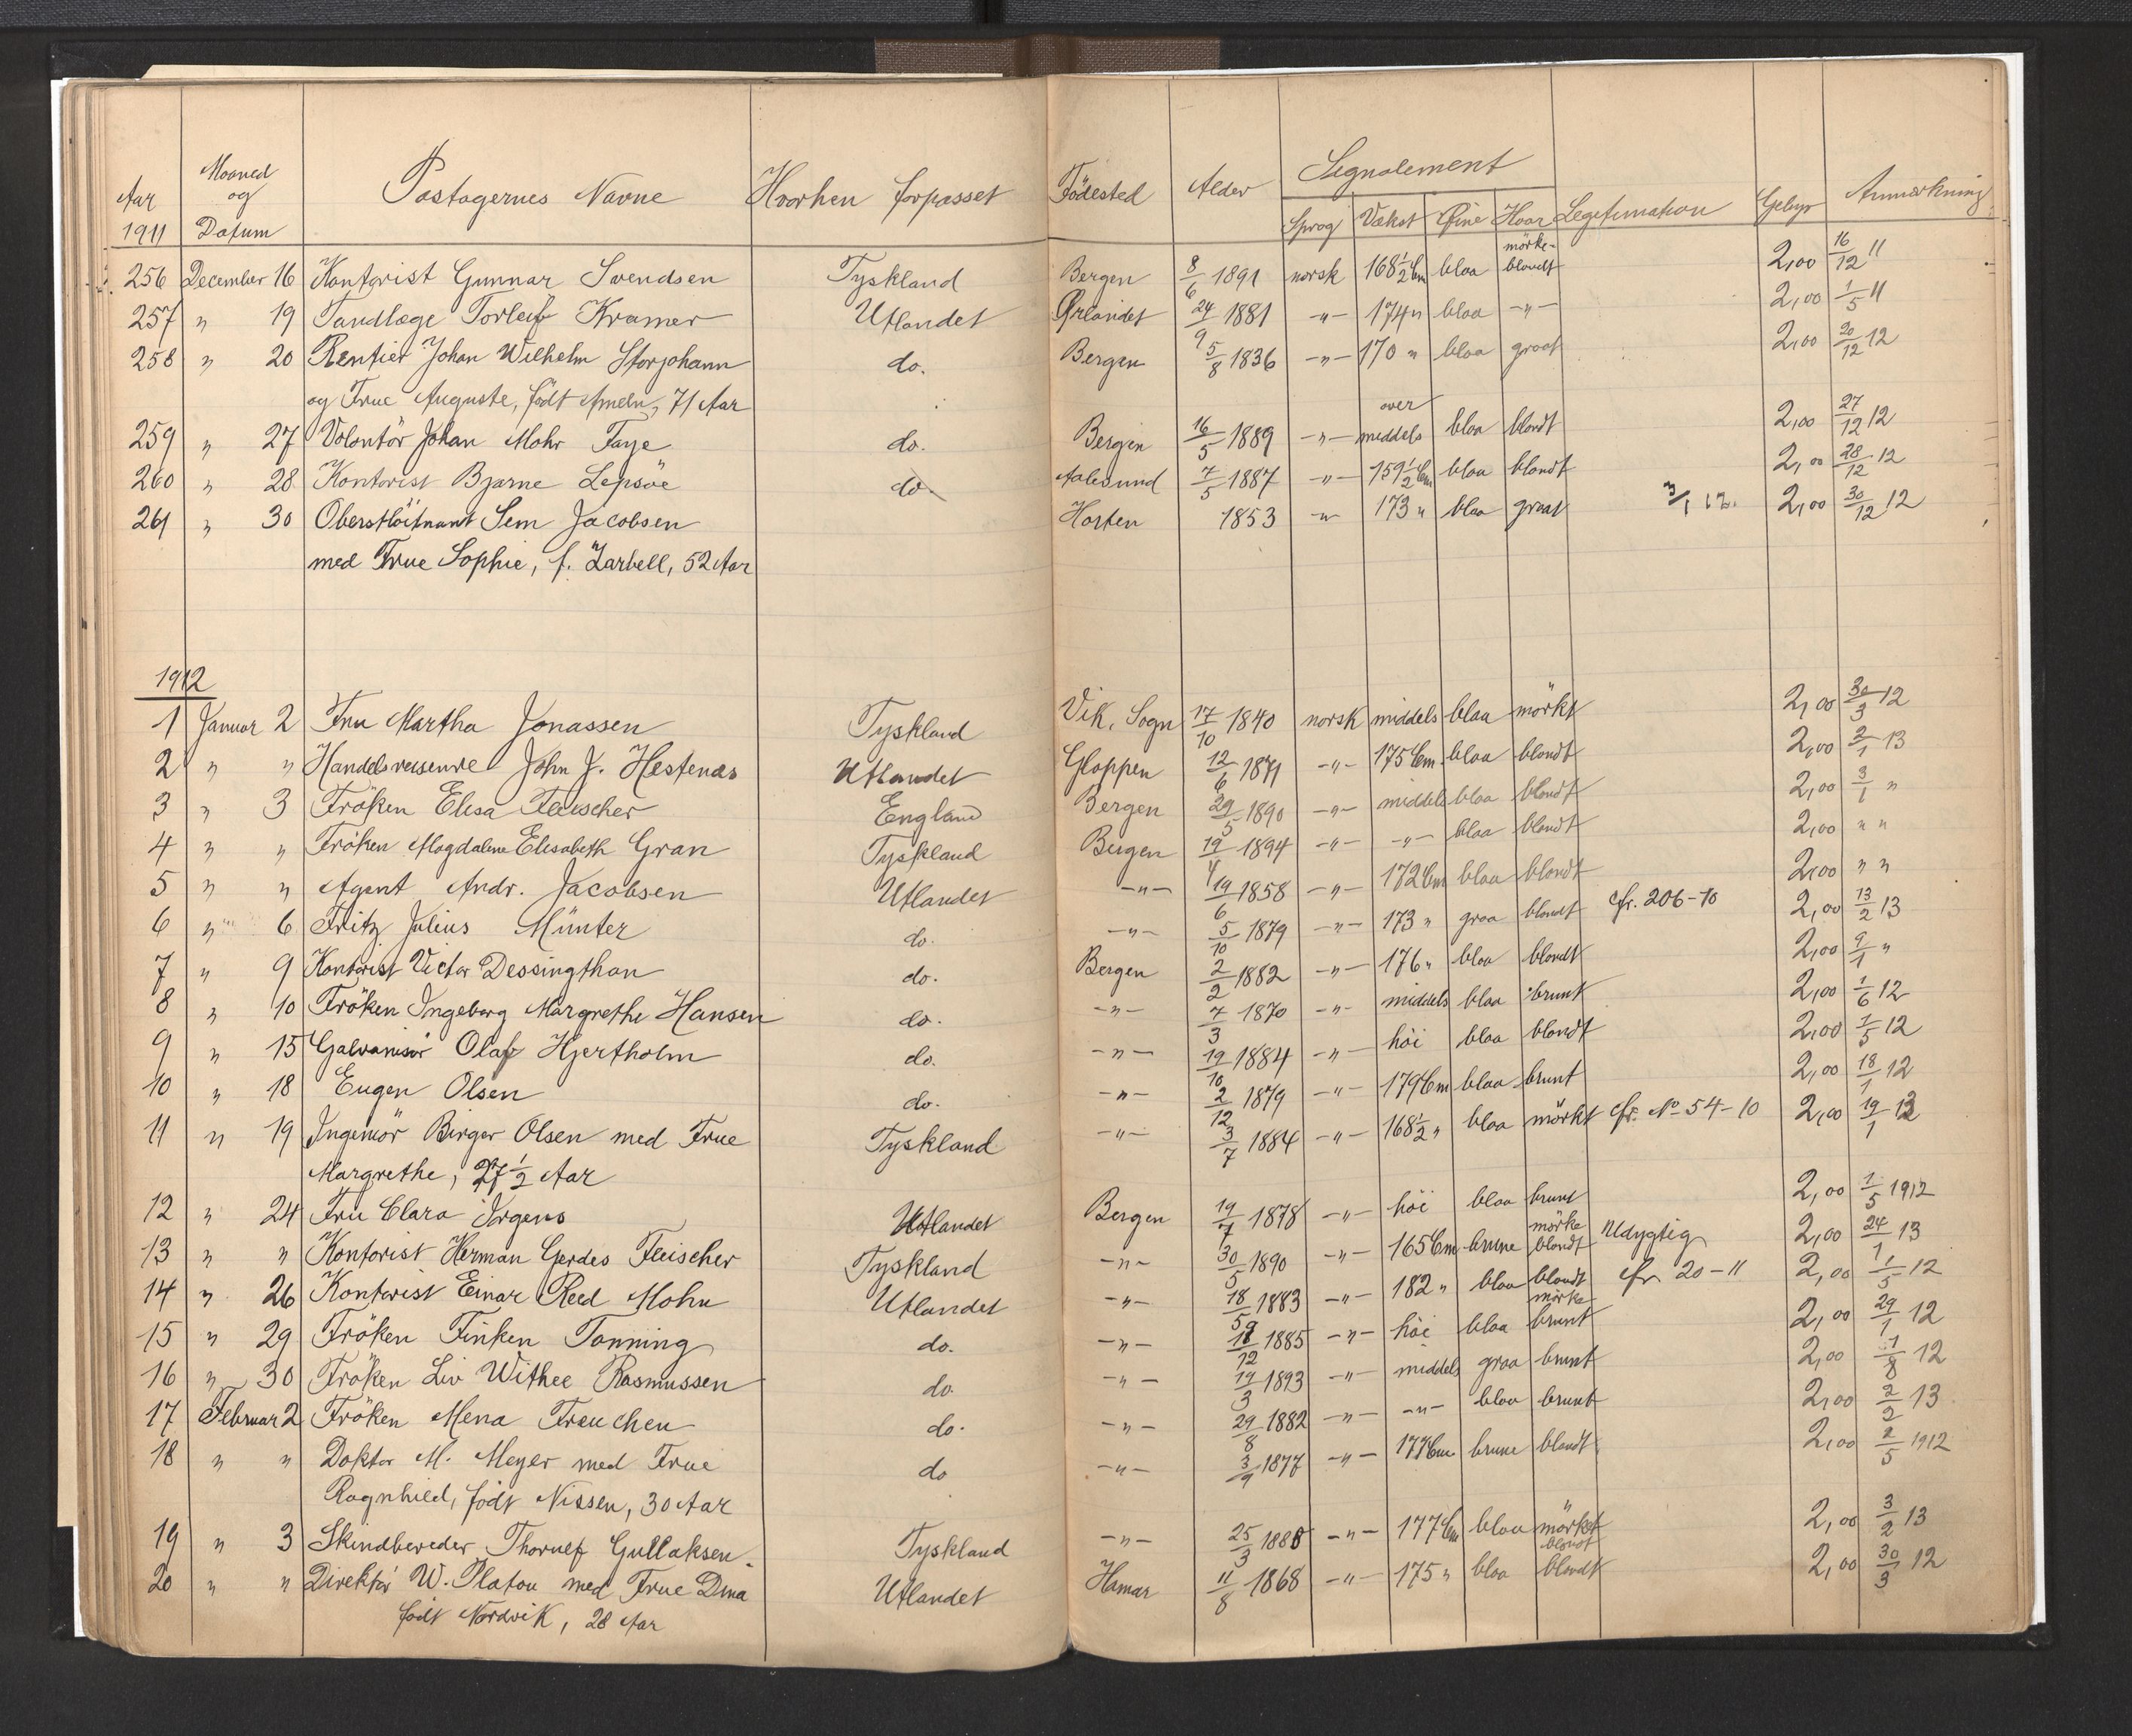 Aar Maaned og Datum Pastagernes Navne Hvorhen forpasset Födested Alder Signalement Legitimation Gebyr Anmærkning
1911 Sprog Vækst Øine Haar
256 December 16 Kontorist Gunnar Svendsen Tyskland Bergen 8/6 1891 norsk 168 1/2 Cm bloa mörke-blondt 2,00 16/12 11
257 " 19 Tandlæge Torleif Kramer Utlandet Ørlandet 24/9 1881 -"- 174 " blaa -"- 2,00 1/5 11
258 " 20 Rentier Johan Wilhelm Storjohann do. Bergen 5/8 1836 -"- 170 " blaa graat 2,00 20/12 12
og Frue Auguste, födt Ameln, 71 Aar
259 " 27 Volontör Johan Mohr Faye do. Bergen 16/5 1889 -"- over middels blaa blondt 2,00 27/12 12
260 " 28 Kontorist Bjarne Lepsöe do. Aalesund 7/5 1887 -"- 159 1/2 Cm blaa blondt 2,00 28/12 12
261 " 30 Oberstlöitnant Sem Jacobsen Horten 1853 -"- 173 " blaa graat 3/1 12. 2,00 30/12 12
med Frue Sophie, f. Zarbell, 52 Aar
1912
1 Januar 2 Fru Martha Jonassen Tyskland Vik, Sogn 17/10 1840 norsk middels blaa mörkt 2,00 30/3 12
2 " " Handelsreisende John J. Hestenæs Utlandet Gloppen 12/6 1871 -"- 175 Cm blaa blondt 2,00 2/1 13
3 " 3 Fröken Elisa Fleischer England Bergen 29/5 1890 -"- middels blaa blondt 2,00 3/1 "
4 " " Fröken Magdalene Elisabeth Gran Tyskland Bergen 19/4 1894 -"- -"- blaa blondt 2,00 " "
5 " " Agent Andr. Jacobsen Utlandet -"- 19/6 1858 -"- 172 Cm blaa blondt 2,00 " "
6 " 6 Fritz Julius Münter do. -"- 5/10 1879 -"- 173 " graa blondt cfr. 206-10 2,00 13/2 13
7 " 9 Kontorist Victor Dessingthon do. Bergen 2/2 1882 -"- 176 " blaa blondt 2,00 9/1 "
8 " 10 Fröken Ingeborg Margrethe Hansen do. -"- 7/3 1870 -"- middels blaa brunt 2,00 1/6 12
9 " 15 Galvanisör Olaf Hjertholm do. -"- 19/10 1884 -"- höi blaa blondt 2,00 1/5 12
10 " 18 Eugen Olsen do. -"- 2/12 1879 -"- 179 Cm blaa brunt 2,00 18/1 12
11 " 19 Ingeniör Birger Olsen med Frue Tyskland -"- 3/7 1884 -"- 168 1/2 " blaa mörkt cfr. No 54-10 2,00 19/1 13
Margrethe, 27 1/2 Aar
12 " 24 Fru Clara Irgens Utlandet Bergen 19/7 1878 -"- höi blaa brunt 2,00 1/5 1912
13 " " Kontorist Herman Gerdes Fleischer Tyskland -"- 30/5 1890 -"- 165 Cm brune mörke blondt Udygtig 2,00 24/1 13
14 " 26 Kontorist Einar Reed Mohn Utlandet -"- 18/5 1883 -"- 182 " blaa blondt cfr. 20-11 2,00 1/5 12
15 " 29 Fröken Finken Tonning do. -"- 1885 -"- höi blaa mörke brunt 2,00 29/1 12
16 " 30 Fröken Liv Withee Rasmussen do. -"- 19/3 1893 -"- middels graa brunt 2,00 1/8 12
17 Februar 2 Fröken Mena Freuchen do. -"- 29/8 1882 -"- -"- blaa brunt 2,00 2/2 13
18 " " Doktor M. Meyer med Frue do -"- 3/9 1877 -"- 177 Cm brune blondt 2,00 2/5 1912
Ragnhild, födt Nissen, 30 Aar
19 " 3 Skindbereder Thorulf Gullaksen. Tyskland -"- 25/3 188 -"- 177 Cm blaa mörket blondt 2,00 3/2 13
20 " " Direktör W. Platou med Frue Dina Utlandet Hamar 11/8 1868 -"- 175 " blaa blondt 2,00 30/3 12
födt Nordvik, 28 Aar